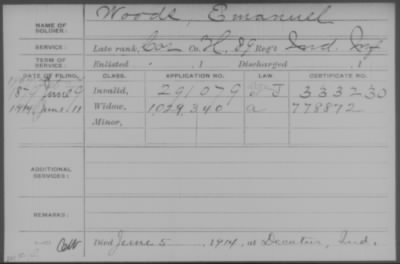 NAME OF SOLDIER: Woods, Emanuel
SERVICE: Late rank, Cor Co. H, 89 Reg't Ind. Inf
TERM OF SERVICE: Enlisted , 1 Discharged , 1
DATE OF FILING. CLASS. APPLICATION NO. LAW CERTIFICATE NO.
1879 June 9 Invalid, 291079 333230
1914 June 11 Widow, 1,029,340 a 778872
Minor,
ADDITIONAL SERVICES:
REMARKS:
Died June 5 1914, at Decatur, Ind.